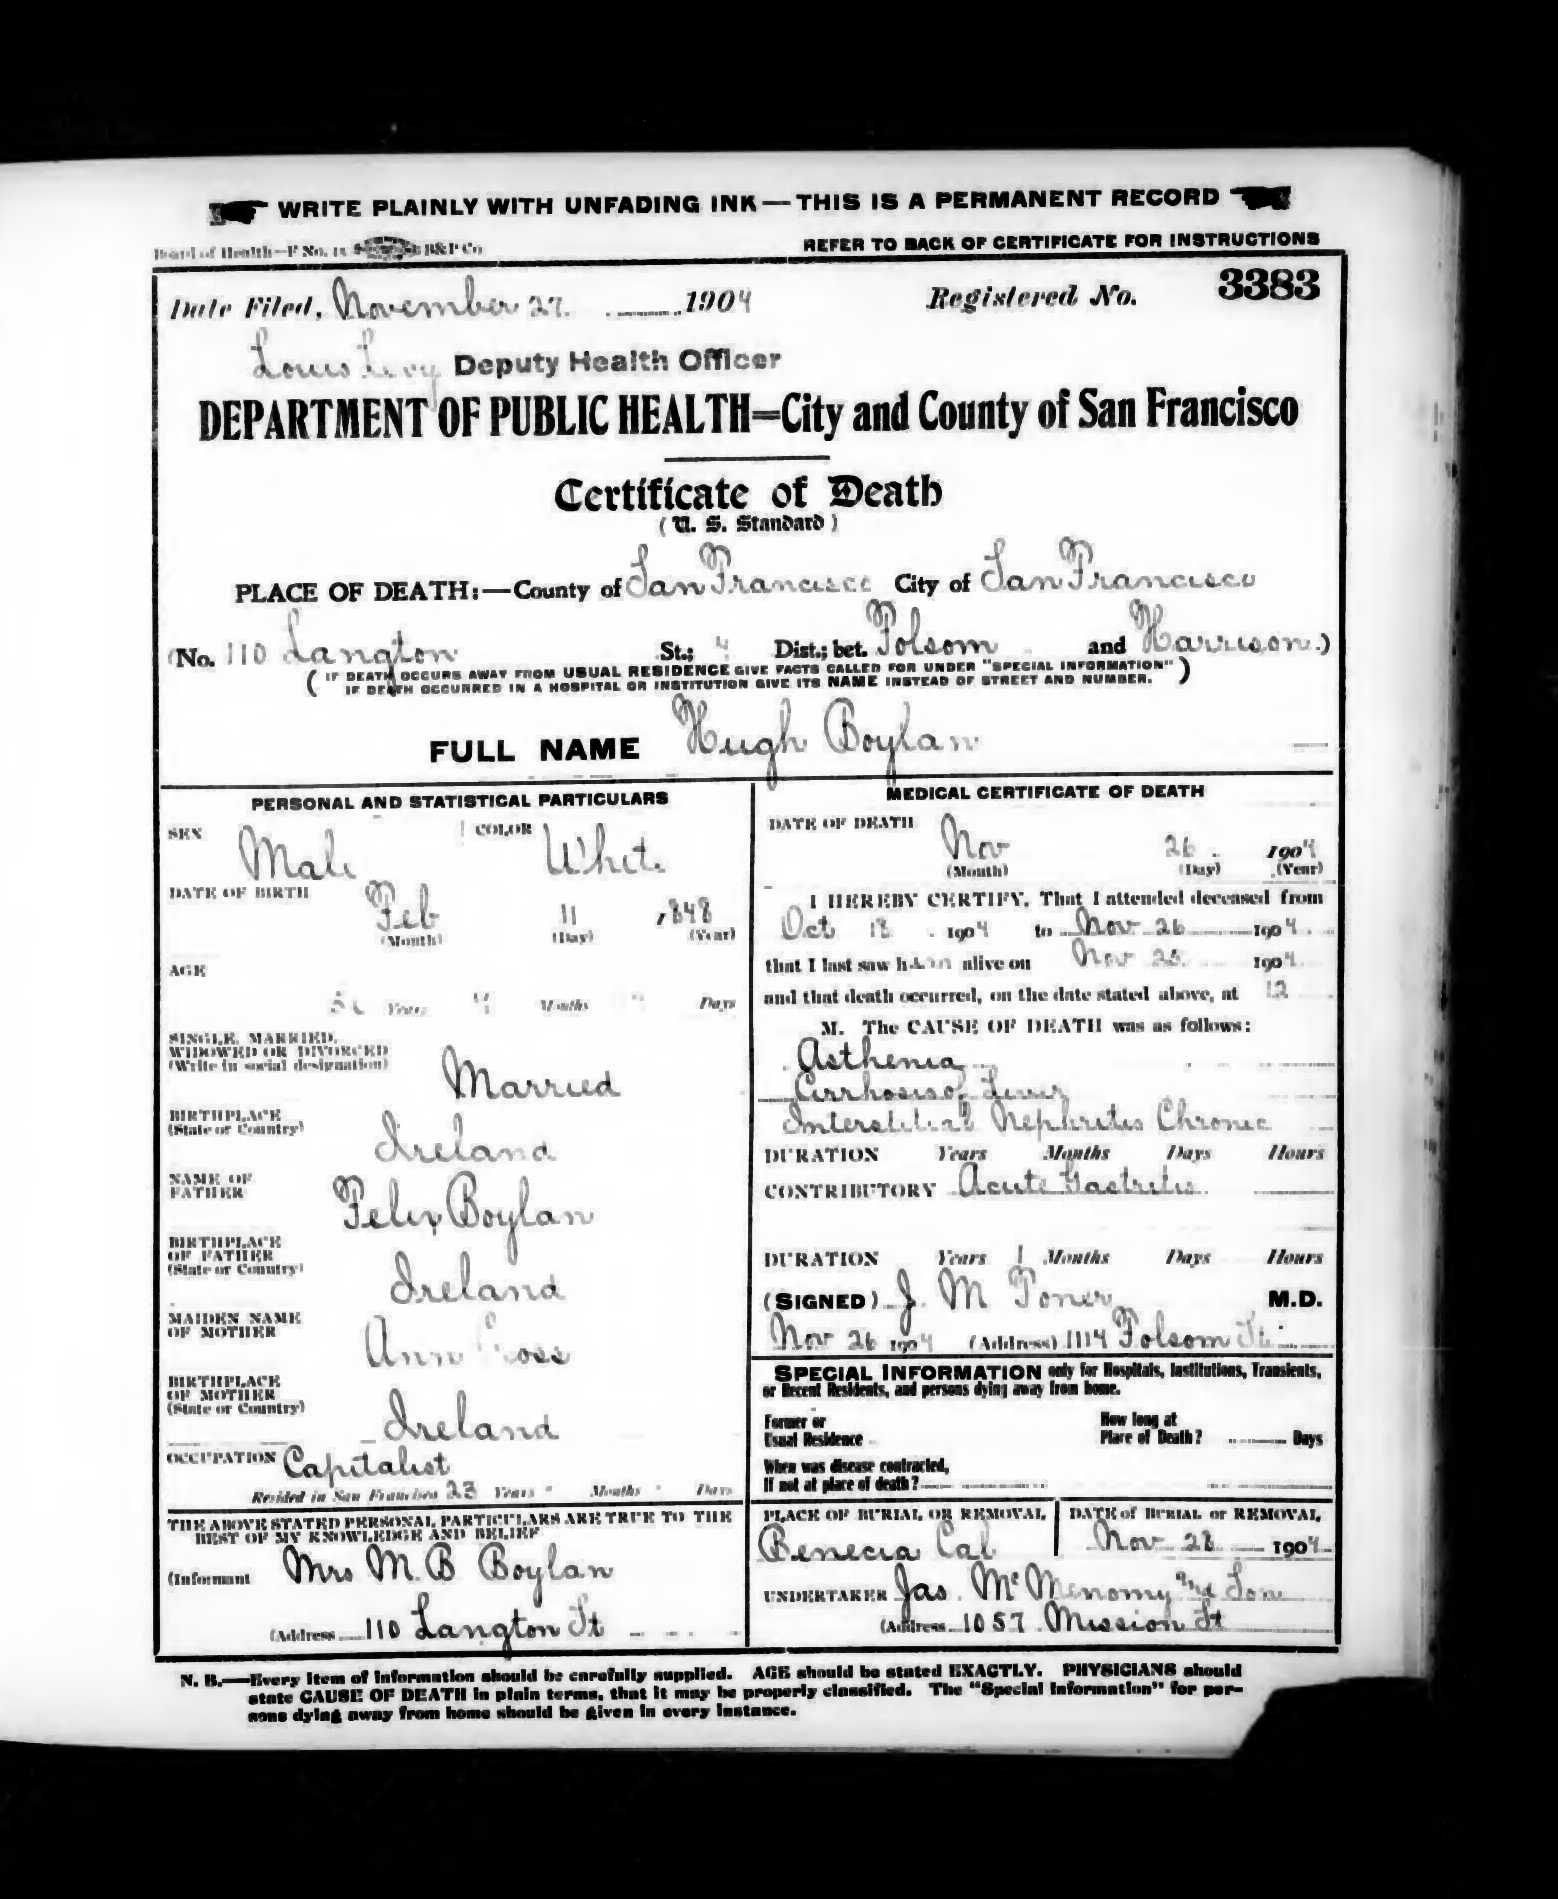 WRITE PLAINLY WITH UNFADING INK—THIS IS A PERMANENT RECORD
Board of Health—F No. B&P Co
REFER TO BACK OF CERTIFICATE FOR INSTRUCTIONS
Date Filed, November 27. 1904 Registered No. 3383
Louis Levy Deputy Health Officer
DEPARTMENT OF PUBLIC HEALTH=City and County of San Francisco
Certificate of Death
(U. S. Standard)
PLACE OF DEATH:—County of San Francisco City of San Francisco
(No. 110 Langton St.; 4 Dist.; bet. Folsom and Harrison.)
( IF DEATH OCCURS AWAY FROM USUAL RESIDENCE GIVE FACTS CALLED FOR UNDER "SPECIAL INFORMATION" )
IF DEATH OCCURRED IN A HOSPITAL OR INSTITUTION GIVE ITS NAME INSTEAD OF STREET AND NUMBER.
FULL NAME Hugh Boylan
PERSONAL AND STATISTICAL PARTICULARS
SEX Male COLOR White
DATE OF BIRTH Feb 11 1848
(Month) (Day) (Year)
AGE
Years 4 Months Days
SINGLE, MARRIED,
WIDOWED OR DIVORCED
(Write in social designation) Married
BIRTHPLACE
(State or Country) Ireland
NAME OF
FATHER Felix Boylan
BIRTHPLACE
OF FATHER
(State or Country) Ireland
MAIDEN NAME
OF MOTHER Ann
BIRTHPLACE
OF MOTHER
(State or Country) Ireland
OCCUPATION Capitalist
Resided in San Francisco 23 Years Months Days
THE ABOVE STATED PERSONAL PARTICULARS ARE TRUE TO THE
BEST OF MY KNOWLEDGE AND BELIEF
(Informant Mrs M. B Boylan
(Address 110 Langton St
MEDICAL CERTIFICATE OF DEATH
DATE OF DEATH Nov 26. 1904
(Month) (Day) (Year)
I HEREBY CERTIFY, That I attended deceased from
Oct 18 1904 to Nov 26 1904
that I last saw him alive on Nov 25 1904
and that death occurred, on the date stated above, at 12
M. The CAUSE OF DEATH was as follows:
Asthenia
Cirrhosis of Liver
Interstitial Nephritis Chronic
DURATION Years Months Days Hours
CONTRIBUTORY Acute Gastritis
DURATION Years 1 Months Days Hours
(SIGNED) J. M Toner M.D.
Nov 26 1904 (Address) 1114 Folsom St.
SPECIAL INFORMATION only for Hospitals, Institutions, Transients,
or Recent Residents, and persons dying away from home.
Former or
Usual Residence
How long at
Place of Death? Days
When was disease contracted,
If not at place of death?
PLACE OF BURIAL OR REMOVAL
Benecia Cal
DATE of BURIAL or REMOVAL
Nov 28 1904
UNDERTAKER Jas. Mc Menomy and Son
(Address 1057 Mission St
N. B.—Every item of information should be carefully supplied. AGE should be stated EXACTLY. PHYSICIANS should
state CAUSE OF DEATH in plain terms, that it may be properly classified. The "Special Information" for per-
sons dying away from home should be given in every instance.